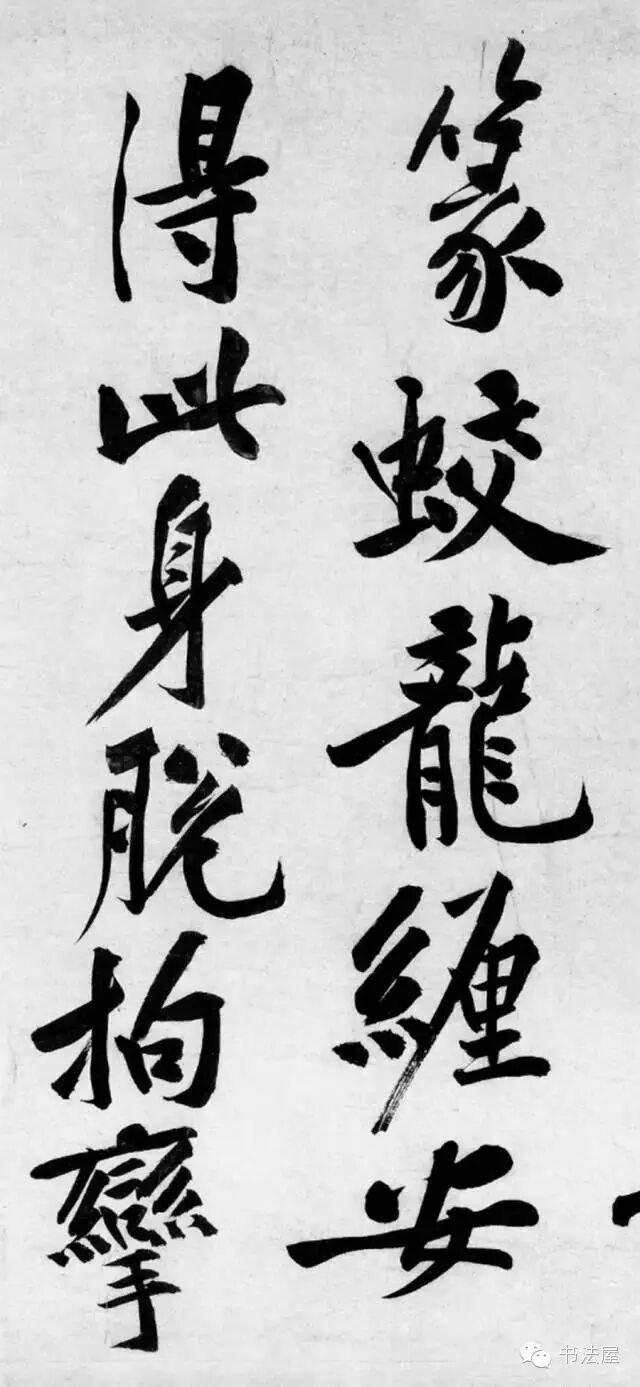 篆蛟龍纏安
得此身脫拘攣
书法屋